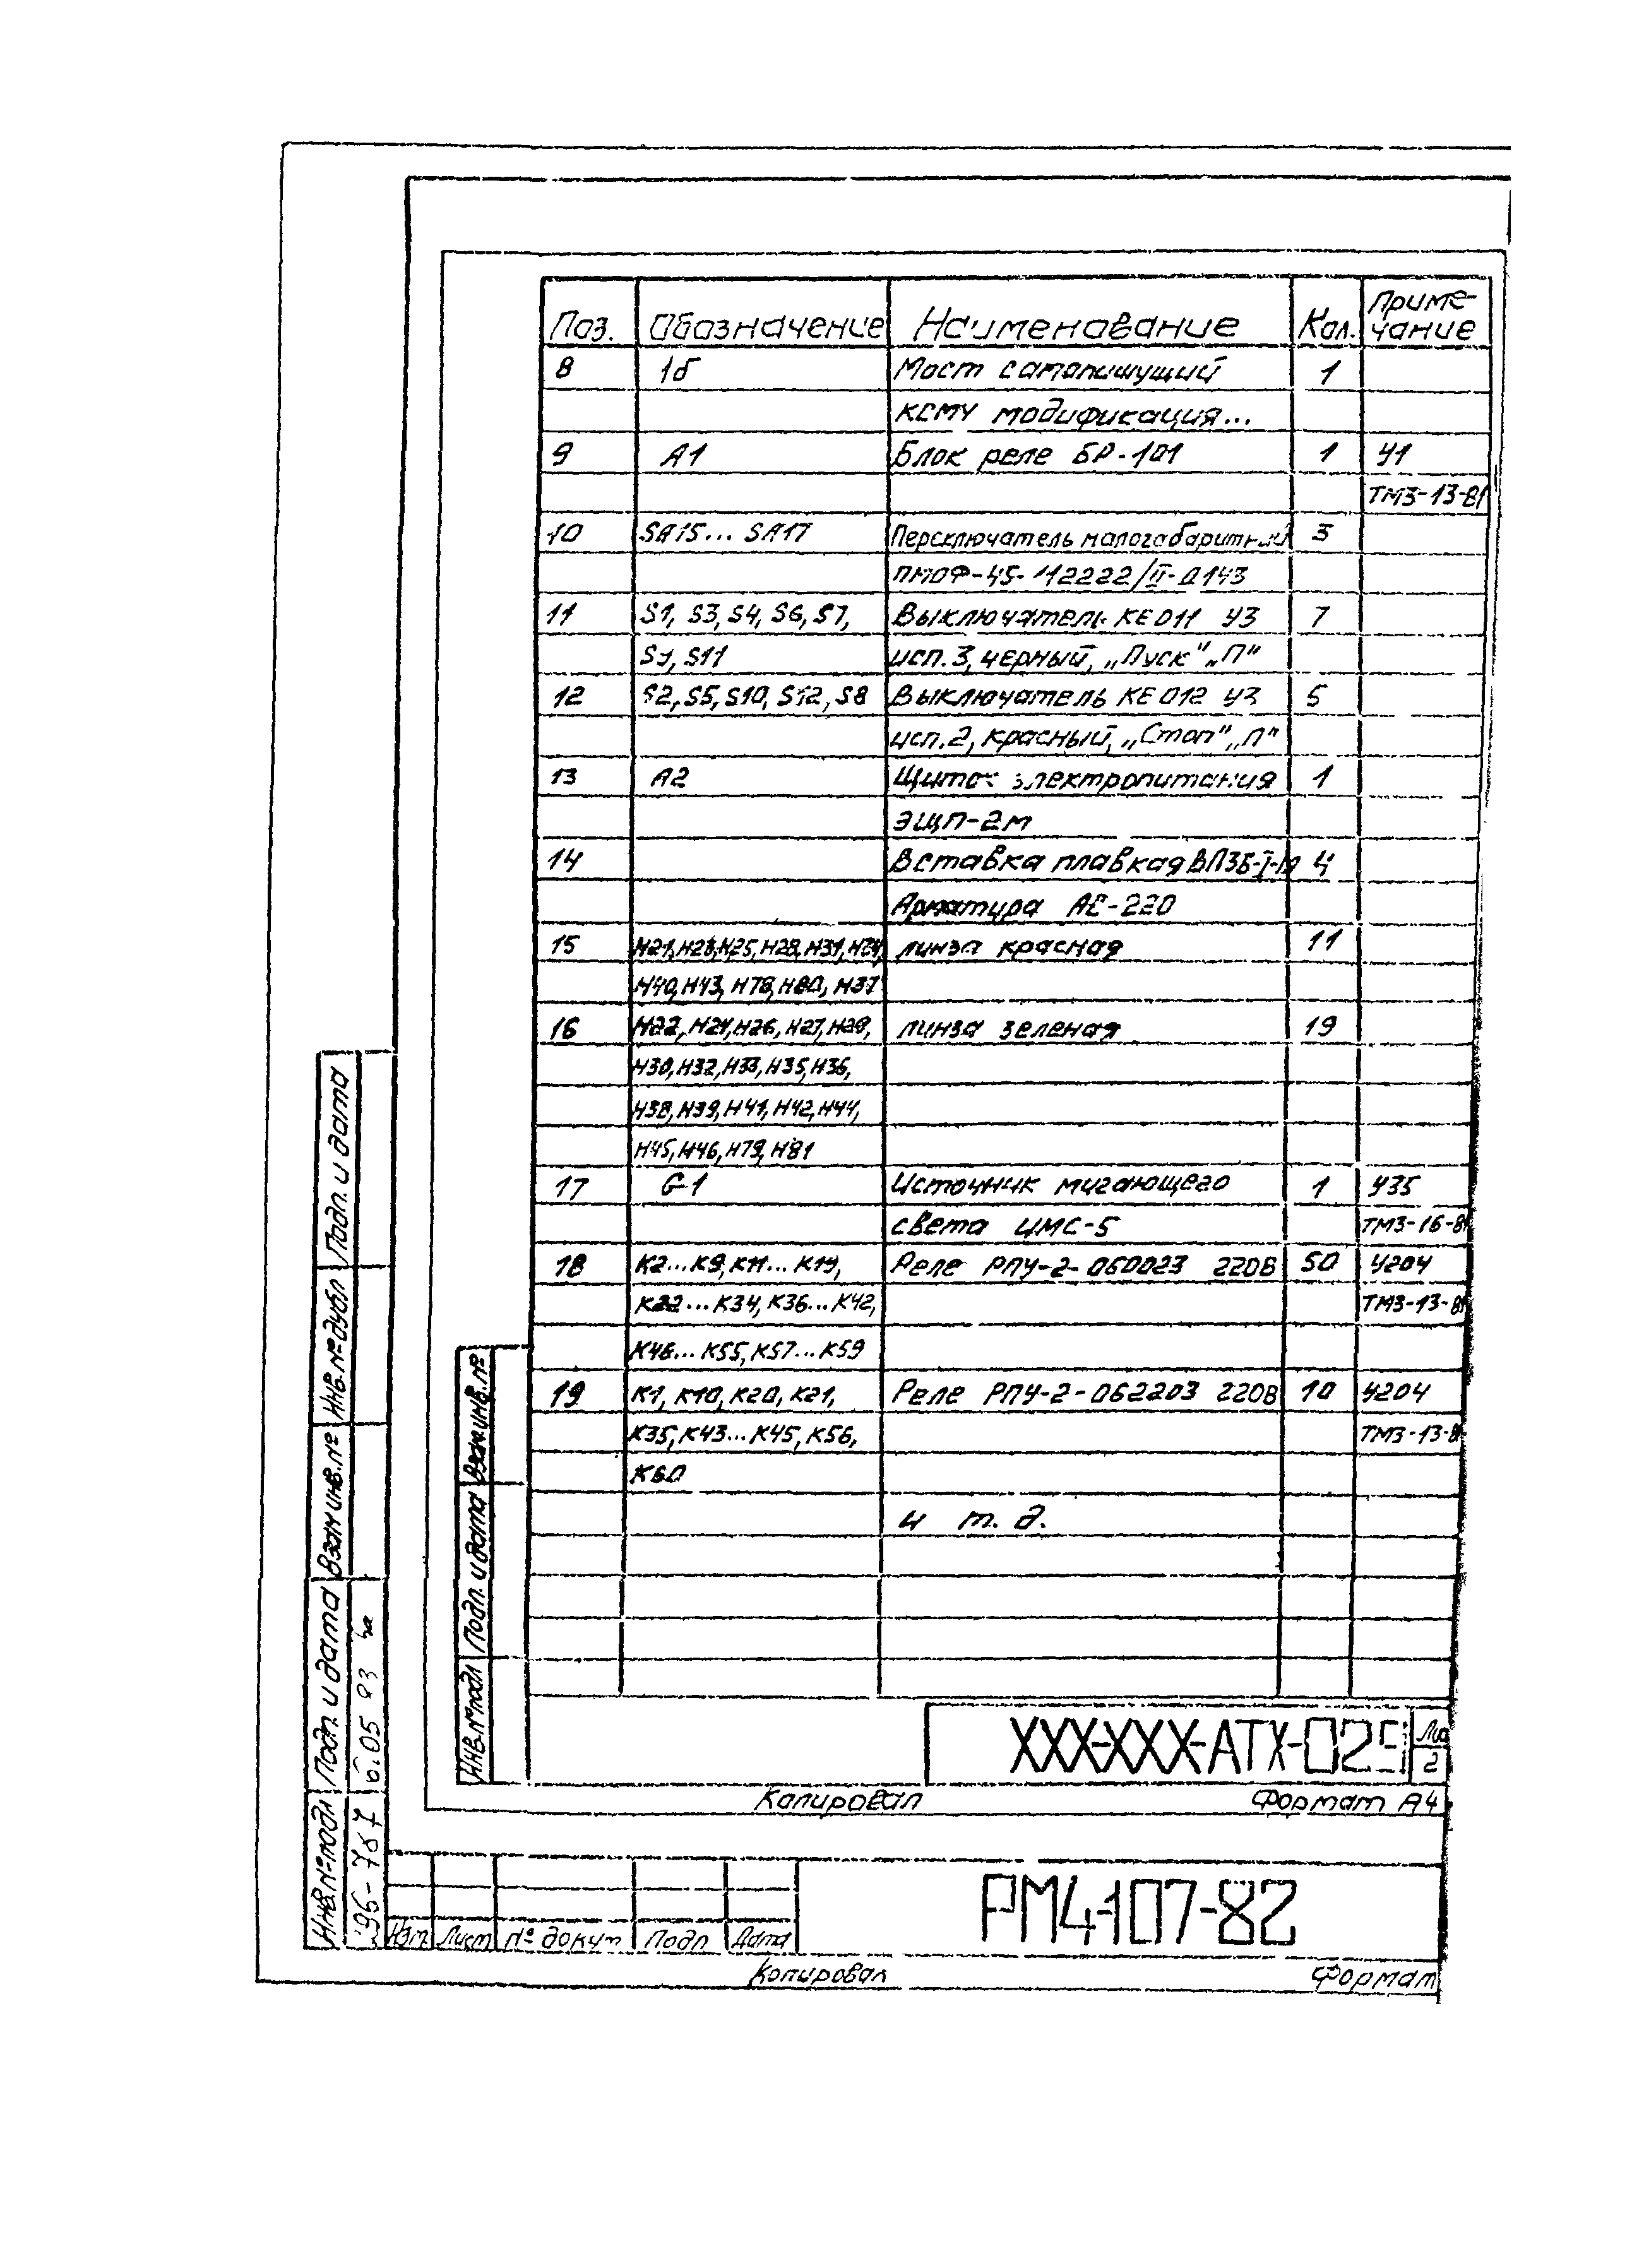 Поз. Обозначение Наименование Кол. Приме-
чание
8 1б Мост самопишущий 1
КСМ4 модификация...
9 А1 Блок реле БР-101 1 У1
ТМ3-13-81
10 SA15... SA17 Переключатель малогабаритный 3
ПМОФ-45-112222/II-Д143
11 S1, S3, S4, S6, S7, Выключатель КЕ011 У3 7
S9, S11 исп.3, черный, „Пуск" „П"
12 S2, S5, S10, S12, S8 Выключатель КЕ012 У3 5
исп.2, красный, „Стоп" „П"
13 А2 Щиток электропитания 1
ЭЩП-2м
14 Вставка плавкая 4
Арматура АС-220
15 Н21, Н23, Н25, Н28, Н31, линза красная 11
Н40, Н43, Н78, Н80, Н37
16 Н22, Н24, Н26, Н27, линза зеленая 19
Н30, Н32, Н33, Н35, Н36,
Н38, Н39, Н41, Н42, Н44,
Н45, Н46, Н79, Н81
17 G1 Источник мигающего 1 У35
света ИМС-5 ТМ3-16-81
18 К2...К9, К11...К19, Реле РПУ-2-060023 220В 50 У204
К22...К34, К36...К42, ТМ3-13-81
К46...К55, К57...К59
19 К1, К10, К20, К21, Реле РПУ-2-062203 220В 10 У204
К35, К43...К45, К56, ТМ3-13-8
К60
и т. д.
XXX-XXX-АТХ-029
2
Копировал Формат А4
РМ4-107-82
Изм. Лист № докум Подп Дата
Копировал Формат
Инв.№подл Подп. и дата Взам инв.№ Инв.№дубл Подп. и дата
Инв.№подл Подп. и дата Взам.инв.№